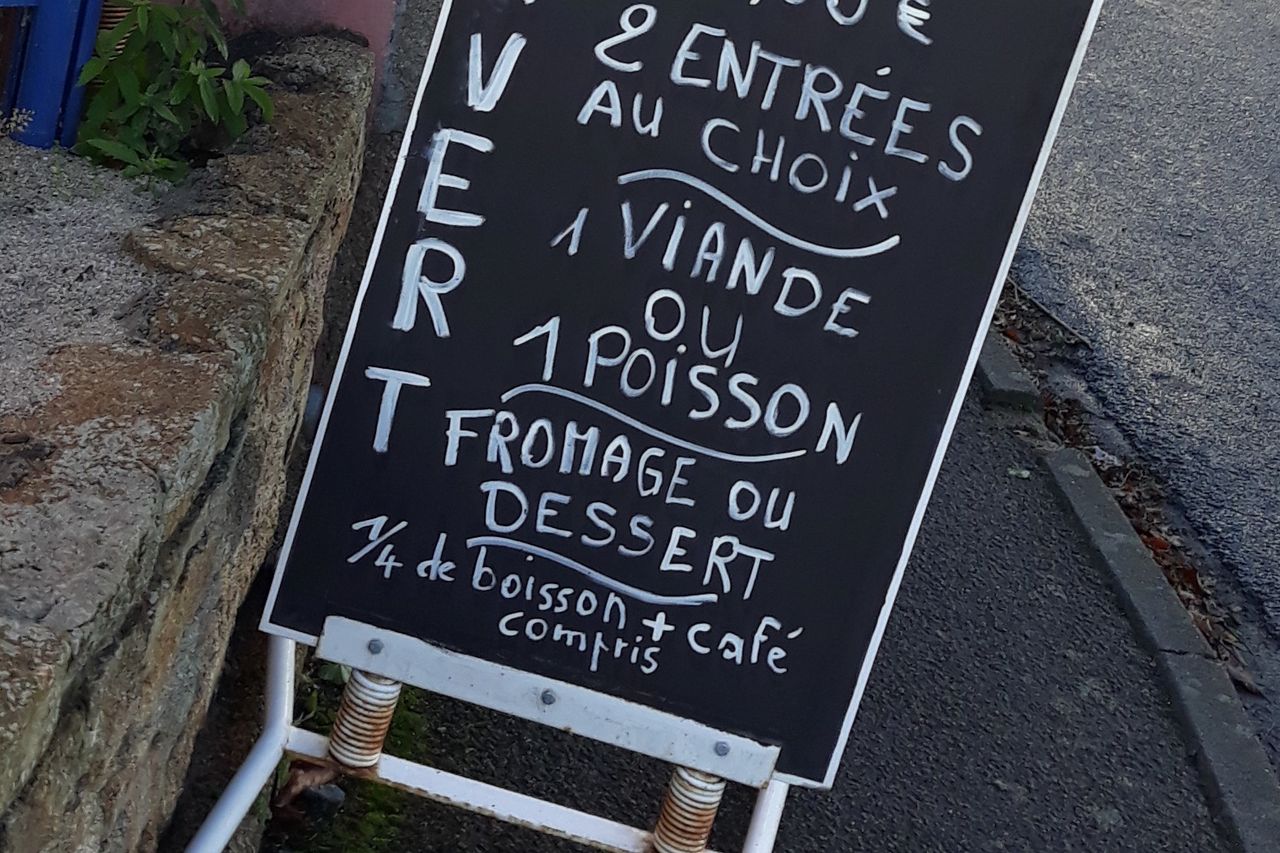 €
2 ENTRÉES
AU CHOIX
1 VIANDE
OU
1 POISSON
FROMAGE OU
DESSERT
1/4 de boisson + café
compris
V
E
R
T